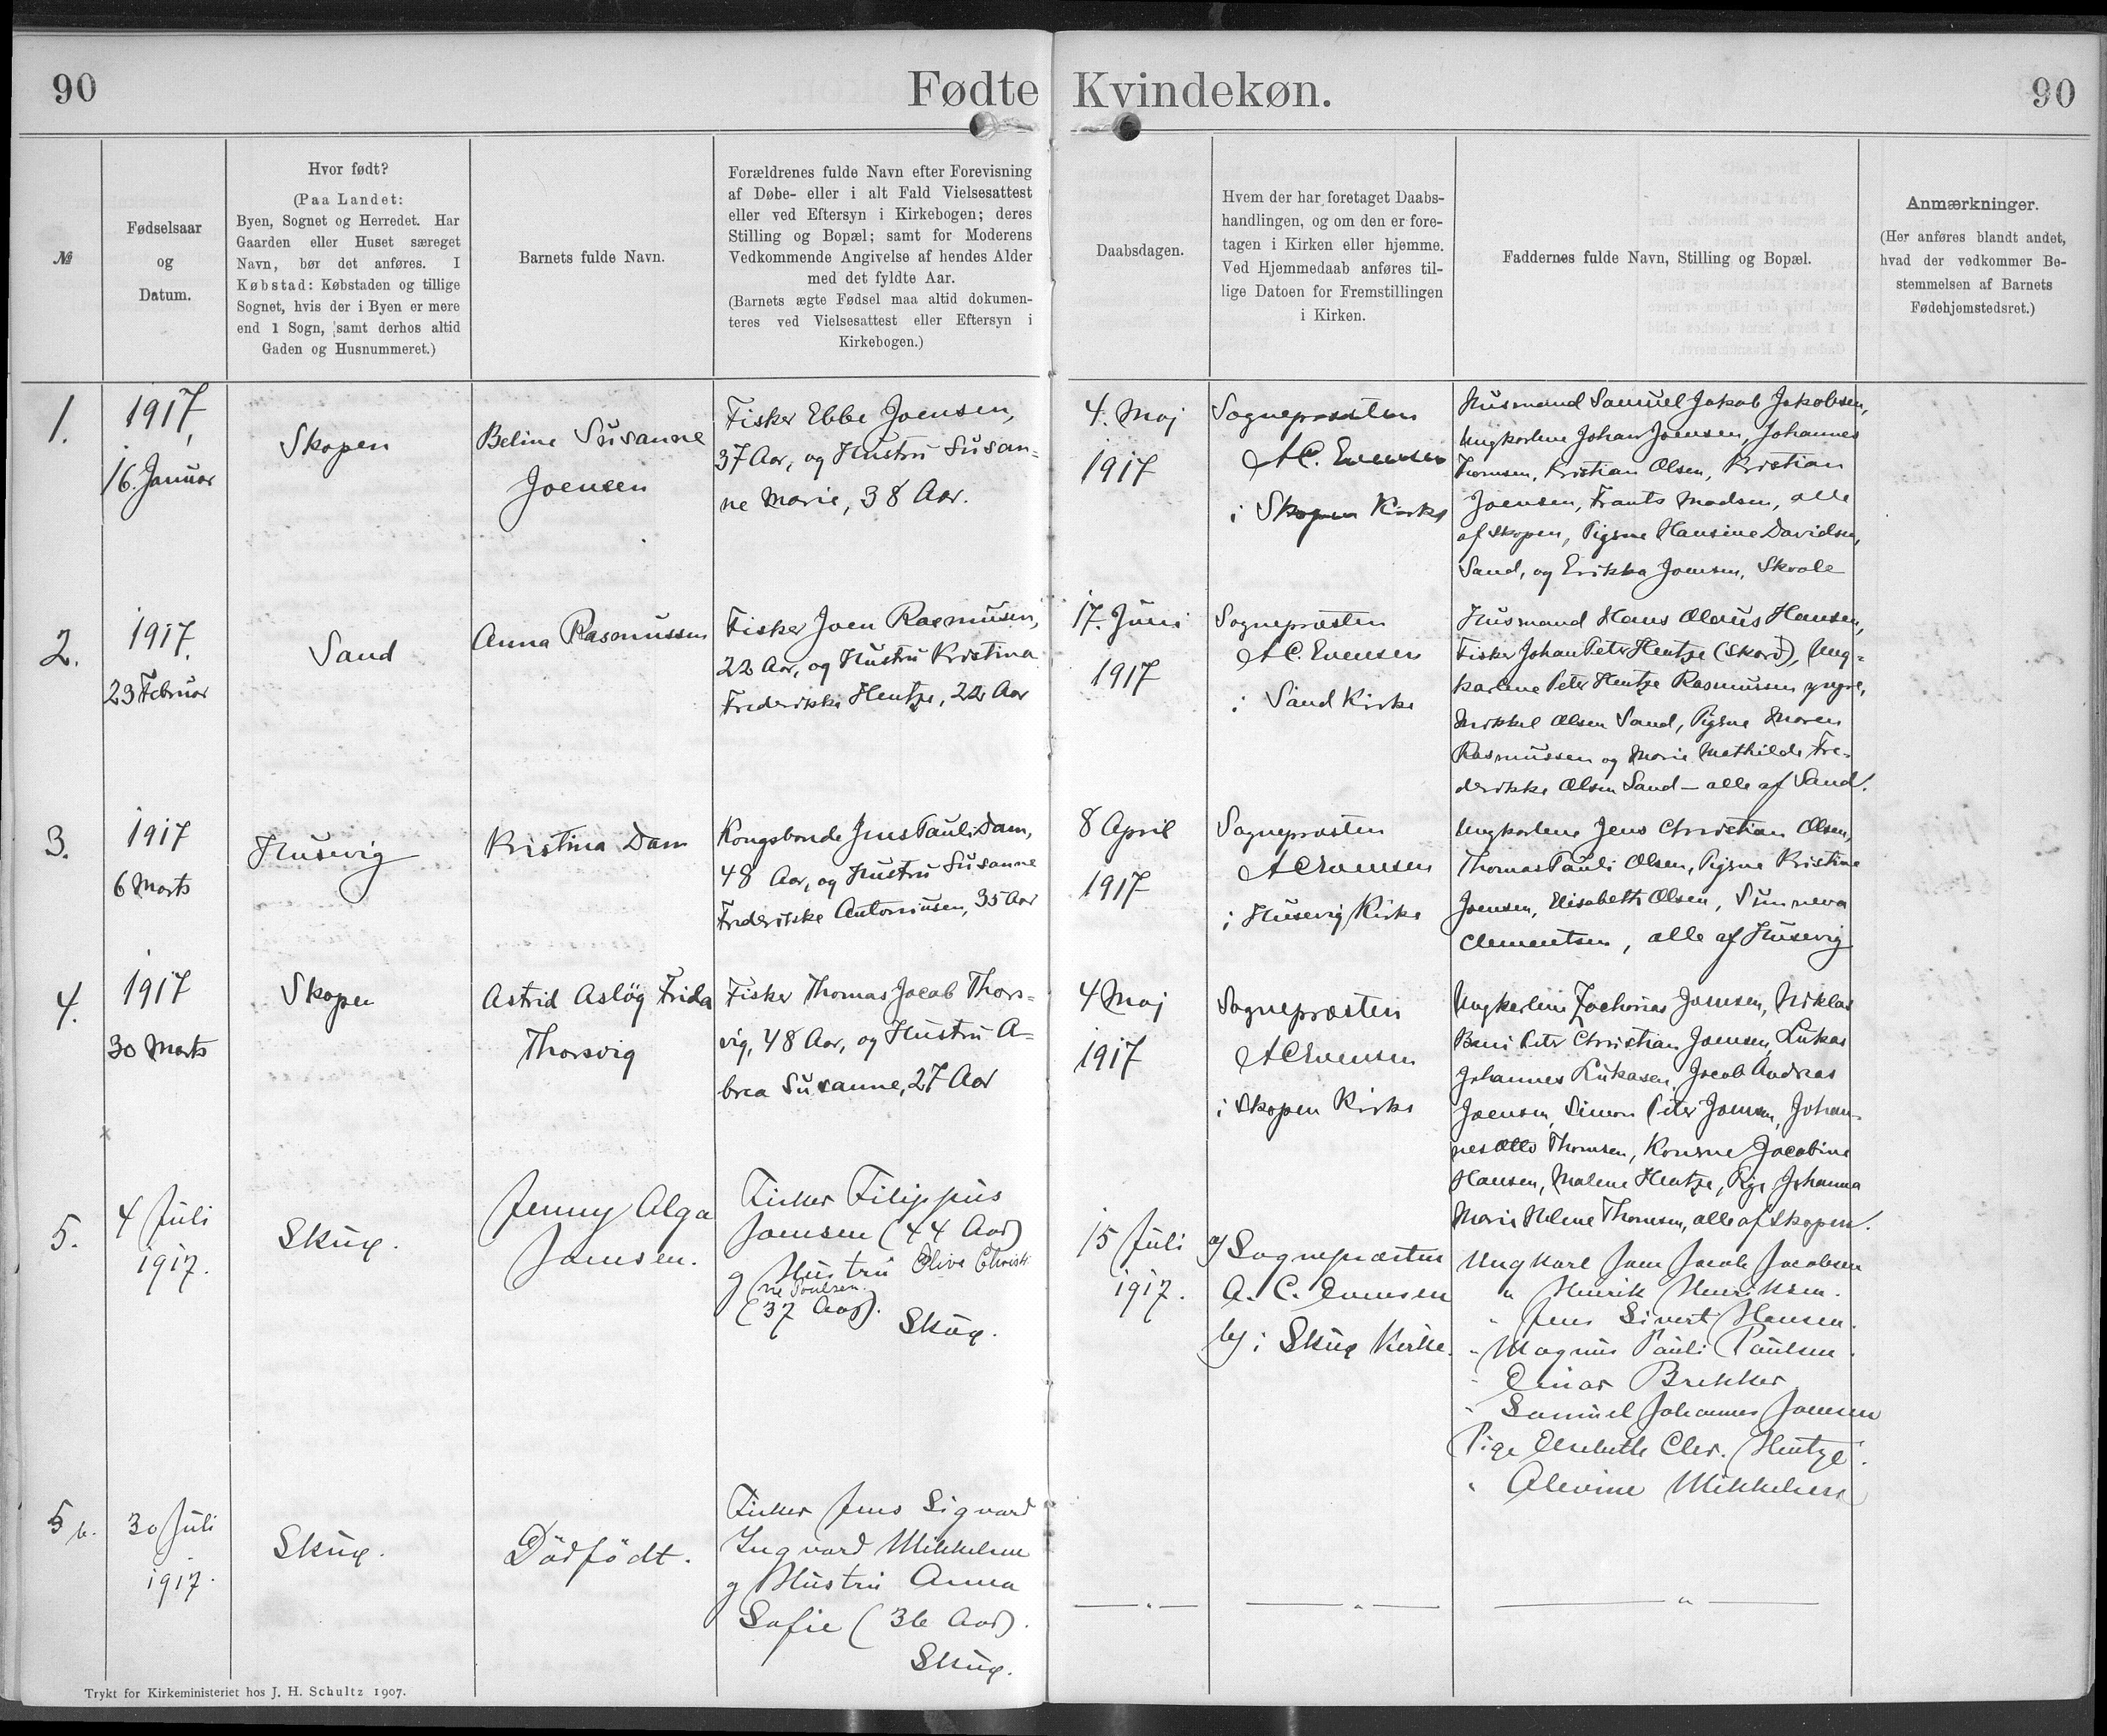 90
Fødte
Kvindekøn.
90
№
Fødselsaar
og
Datum.
Hvor født?
(Paa Landet:
Byen, Sognet og Herredet. Har
Gaarden eller Huset særeget
Navn, bør det anføres. I
Købstad: Købstaden og tillige
Sognet, hvis der i Byen er mere
end 1 Sogn, samt derhos altid
Gaden og Husnummeret.)
Barnets fulde Navn.
Forældrenes fulde Navn efter Forevisning
af Døbe- eller i alt Fald Vielsesattest
eller ved Eftersyn i Kirkebogen; deres
Stilling og Bopæl; samt for Moderens
Vedkommende Angivelse af hendes Alder
med det fyldte Aar.
(Barnets ægte Fødsel maa altid dokumen-
teres ved Vielsesattest eller Eftersyn i
Kirkebogen.)
Daabsdagen.
Hvem der har foretaget Daabs-
handlingen, og om den er fore-
tagen i Kirken eller hjemme.
Ved Hjemmedaab anføres til-
lige Datoen for Fremstillingen
i Kirken.
Faddernes fulde Navn, Stilling og Bopæl.
Anmærkninger.
(Her anføres blandt andet,
hvad der vedkommer Be-
stemmelsen af Barnets
Fødehjemstedsret.)
1.
1917,
16. Januar
Skopen
Beline Susanne
Joensen
Fisker Ebbe Joensen,
37 Aar, og Hustru Susan=
ne Marie, 38 Aar.
4. Maj
1917
Sognepræsten
A.C. Evensen
i Skopen Kirke
Husmand Samuel Jakob Jakobsen,
Ungkarlene Johan Joensen, Johannes
Thomsen, Kristian Olsen, Kristian
Joensen, Frants Madsen, alle
af Skopen, Pigerne Hansine Davidsen,
Sand, og Erikka Joensen, Skaale
2.
1917.
23 Februar
Sand
Anna Rasmussen
Fisker Joen Rasmussen,
22 Aar, og Hustru Kristina
Frederikke Hentze, 22 Aar
17. Juni
1917
Sognepræsten
A.C. Evensen
i Sand Kirke
Husmand Hans Olaus Hansen,
Fisker Johan Peter Hentze (Skord), Ung=
karlene Peter Hentze Rasmussen yngre,
Mikkel Olsen Sand, Pigerne Maren
Rasmussen og Marie Mathilde Fre-
derikke Olsen Sand — alle af Sand.
3.
1917
6 Marts
Husevig
Kristina Dam
Kongsbonde Jens Pauli Dam,
48 Aar, og Hustru Susanne
Frederikke Antoniusen, 35 Aar
8 April
1917
Sognepræsten
A C Evensen
i Husevig Kirke
Ungkarlene Jens Christian Olsen,
Thomas Pauli Olsen, Pigerne Kristine
Joensen, Elisabeth Olsen, Sunneva
Clementsen, alle af Husevig
4.
1917
30 Marts
Skopen
Astrid Aslög Frida
Thorsvig
Fisker Thomas Jacob Thors=
vig, 48 Aar, og Hustru A=
brea Susanne, 27 Aar
4 Maj
1917
Sognepræsten
A C Evensen
i Skopen Kirke
Ungkarlene Zacharias Joensen, Niklas
Peter Christian Joensen, Lukas
Johannes Lukasen, Jacob Andreas
Joensen, Simon Peter Joensen, Johan=
nes Otto Thomsen, Konerne Jacobine
Hansen, Malene Hentze, Pige Johanna
Marie Helene Thomsen, alle af Skopen.
5.
4 Juli
1917.
Skuø.
Jenny Alga
Joensen.
Fisker Filippus
Joensen (44 Aar)
og Hustru Olive Christi
ne Poulsen.
(37 Aar).
Skuø.
15 Juli
1917.
a) Sognepræsten
A. C. Evensen
b) i Skuø Kirke.
Ungkarl Joen Jacob Jacobsen
" Henrik Henriksen.
" Jens Sivert Hansen.
" Magnus Pauli Paulsen.
" Einar Brekker
" Samuel Johannes Joensen
Pige Elsebeth Chr. Hentze.
" Alevine Mikkelsen
5 b.
30 Juli
1917.
Skuø.
Dödfödt.
Fisker Jens Sigvard
Ingvard Mikkelsen
og Hustru Anna
Sofie (36 Aar).
Skuø.
— " —
— " —
— " —
Trykt for Kirkeministeriet hos J. H. Schultz 1907.